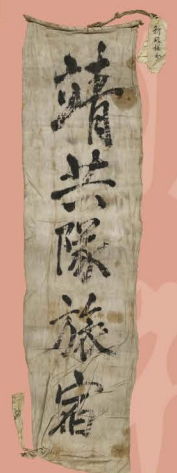 靖共隊旅宿